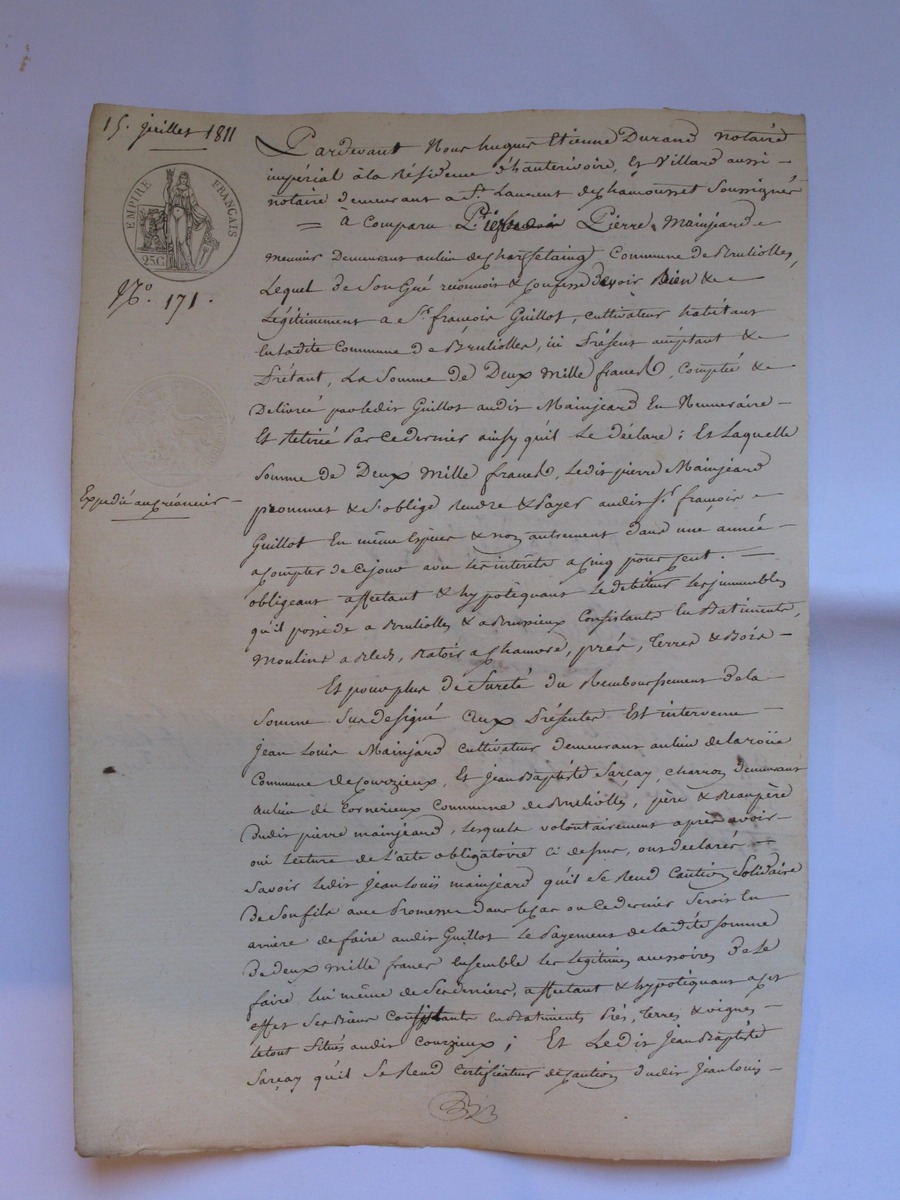 15. juillet 1811
EMPIRE FRANÇAIS
25 C
N.° 171.
Expedié au créancier
Pardevant Nous hugues Etienne Durand notaire
impérial à la Résidence d'hauterivoire, Et Villard aussi
notaire demeurant a St. Laurent de chamousset Soussignés
= à Comparu Pierre Mainjeard
meunier demeurant au lieu de Commune de Brulioles,
Lequel de Son Gré reconnoit & Confesse devoir Bien &
Légitimement a Sr. françois Guillot, cultivateur habitant
En ladite Commune de Brulioles, ici Présent acceptant &
Prétant, La Somme de Deux Mille francs, Comptée &
Delivrée par ledit Guillot audit Mainjeard En Numeraire
Et Retirée Par ce dernier ainsy qu'il Le déclare ; Et Laquelle
Somme de Deux Mille francs, Ledit pierre Mainjeard
promet & S'oblige Rendre & Payer audit Sr. françois
Guillot En même Espèces & non autrement dans une année
a Compter de Cejour avec Les intérêts a Cinq pour Cent.
obligeant affectant & hypotéquant Le debiteur Les immeubles
qu'il possède a Brulioles & a Brussieux Consistants En Batiments,
Moulins a Bled, Batoir a Chanvre, prés, Terres & Bois
Et pour plus de Sureté du Remboursement de la
Somme Sus designé aux Présentes Est intervenu
Jean Louis Mainjard Cultivateur demeurant au lieu de la roüe
Commune de Courzieux, Et Jean Baptiste Sarcay, charron demeurant
au lieu de Cornerieux Commune de Brulioles, père & Beaupère
dudit pierre mainjeard, Lesquels volontairement après avoir
oui Lecture de l'acte obligatoire Ci dessus, ont declarés
Savoir Ledit Jean Louis mainjeard qu'il Se Rend Caution Solidaire
de Son fils avec Promesse dans le Cas ou Ce dernier Seroit En
arriere de faire audit Guillot Le Payement de ladite Somme
de deux Mille francs Ensemble Les Légitimes accessoires de Le
faire Lui même de Ses deniers, affectant & hypotéquant a cet
effet Ses Biens Consistants En Batiments Prés, Terres & vignes
Le tout Situés audit Courzieux ; Et Ledit Jean Baptiste
Sarcay qu'il Se Rend Certificateur de Caution dudit Jean Louis